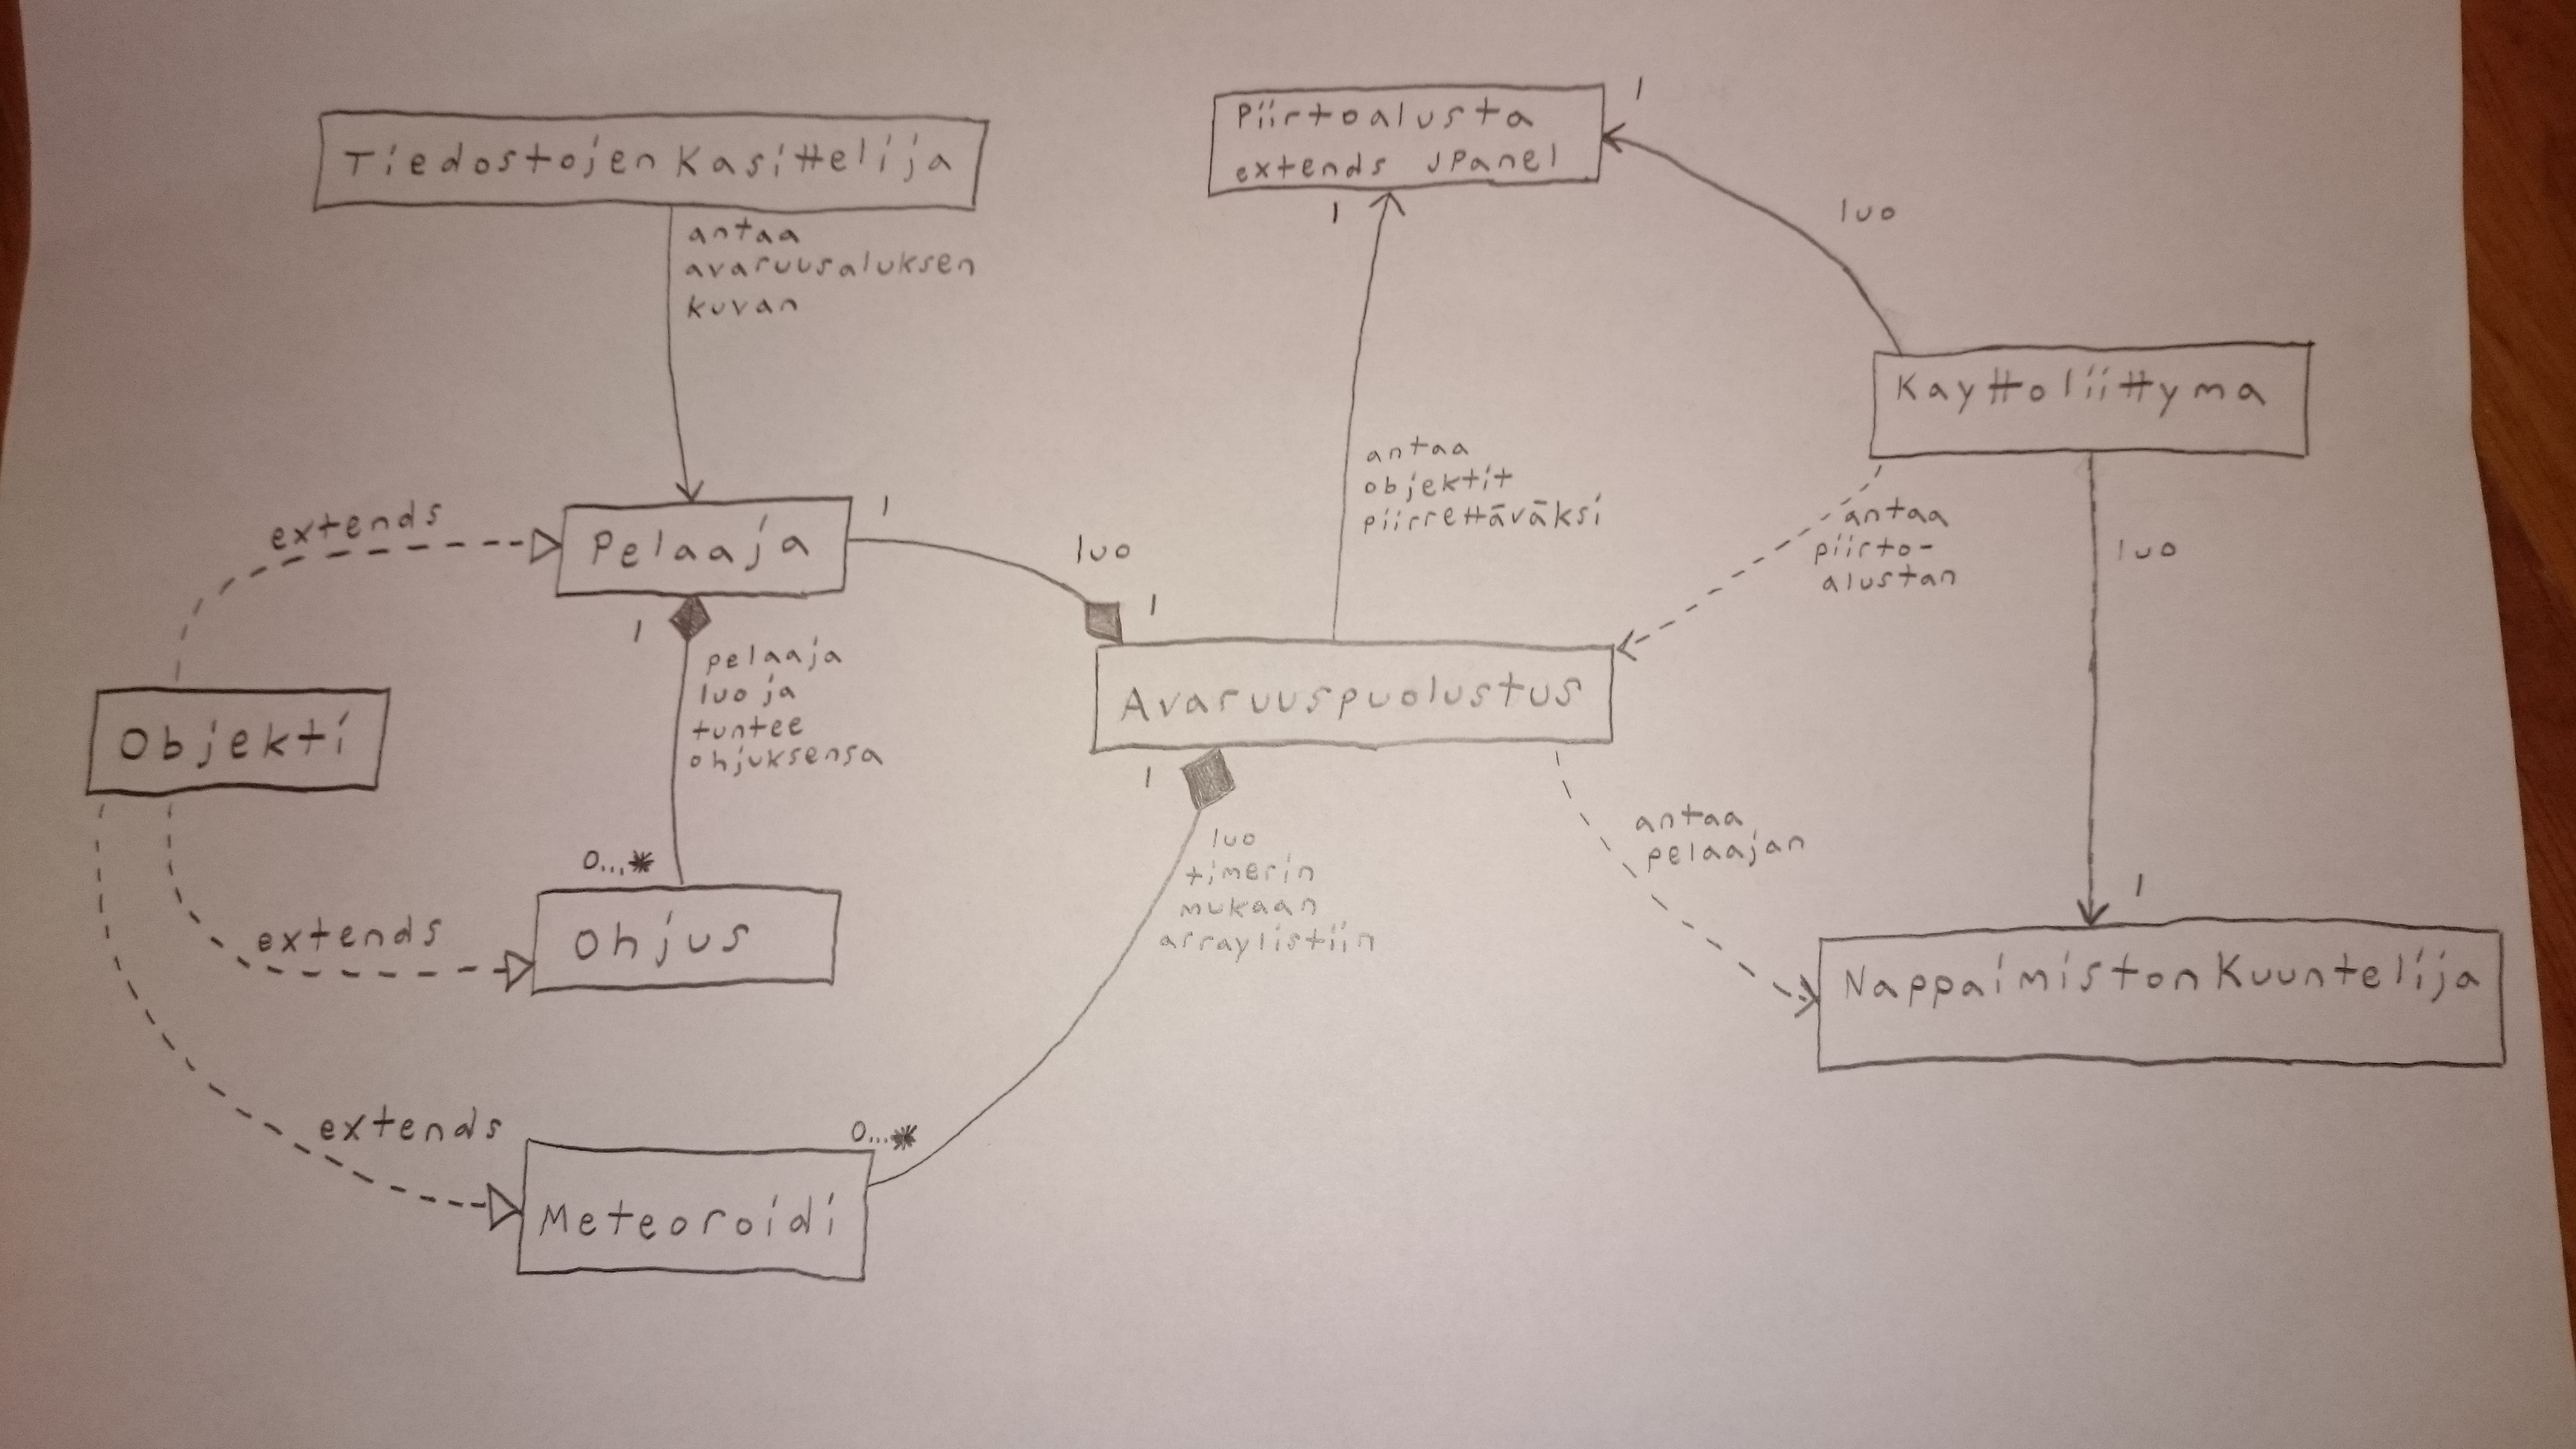 TiedostojenKasittelija
antaa
avaruusaluksen
kuvan
Piirtoalusta
extends JPanel
1
1
luo
Kayttoliittyma
antaa
objektit
piirrettäväksi
antaa
piirto-
alustan
luo
extends
Pelaaja
1
luo
1
1
pelaaja
luo ja
tuntee
ohjuksensa
Objekti
Avaruuspuolustus
1
luo
timerin
mukaan
arraylistiin
antaa
pelaajan
1
NappaimistonKuuntelija
0...*
extends
Ohjus
extends
0...*
Meteoroidi